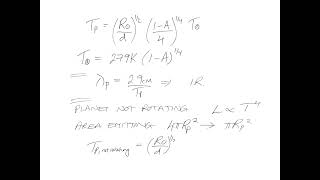 Tp = (R⊙/d)^1/2 (1-A/4)^1/4 T⊙
T⊕ = 279K (1-A)^1/4
λp = 2.9mm/Tp ⇒ IR
PLANET NOT ROTATING L ∝ T^4
AREA EMITTING 4πRp^2 → πRp^2
Tp, not rotating = (R⊙/d)^1/2